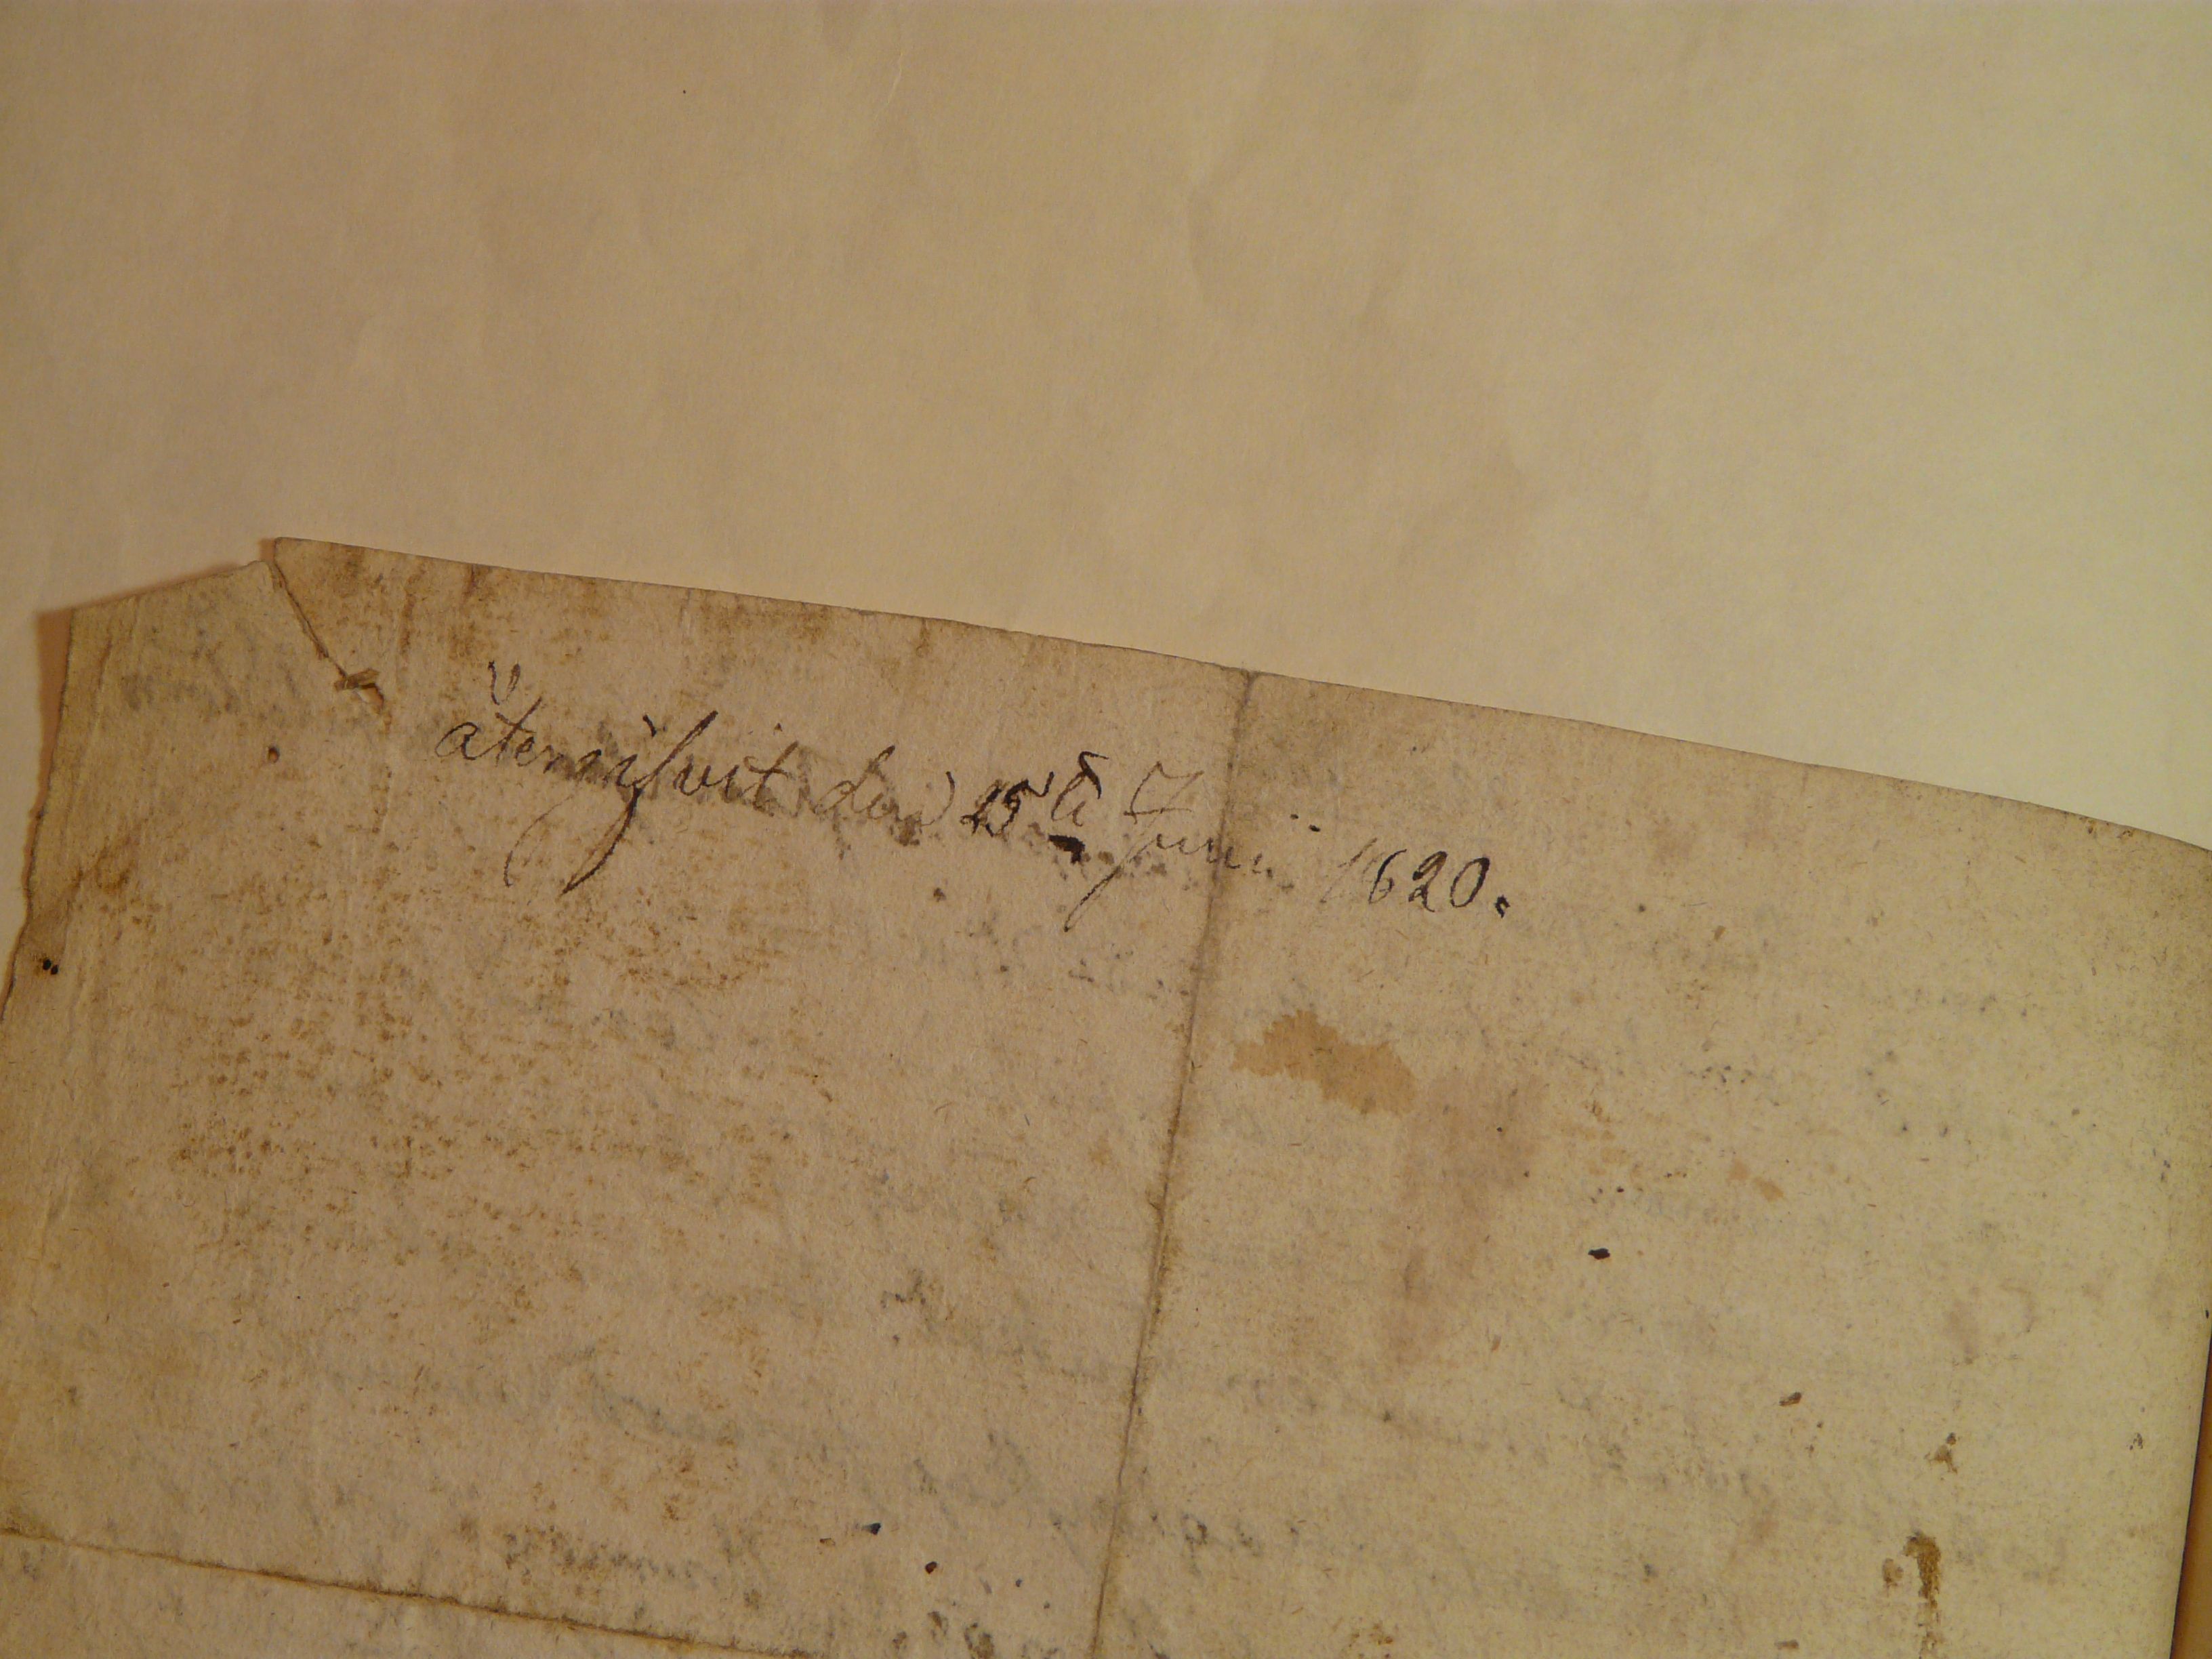 återgifvit den 25te Junii 1820.